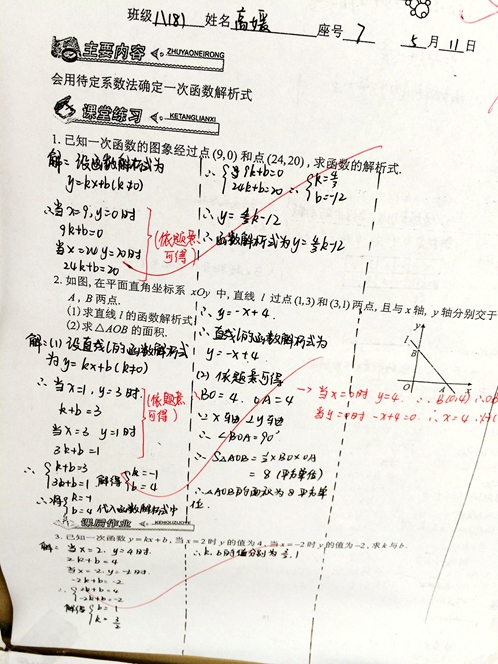 班级 八(8) 姓名 高媛 座号 7 5月11日
主要内容 ZHUYAONEIRONG
会用待定系数法确定一次函数解析式
课堂练习 KETANGLIANXI
1. 已知一次函数的图象经过点(9,0)和点(24,20),求函数的解析式.
解:设函数解析式为
y=kx+b(k≠0)
∴当x=9,y=0时
9k+b=0
当x=24 y=20时
24k+b=20
(依题意
可得)
∴{9k+b=0
24k+b=20
∴{k=4/3
b=-12
∴y=4/3x-12
∴函数解析式为y=4/3x-12
2. 如图,在平面直角坐标系 xOy 中,直线 l 过点(1,3)和(3,1)两点,且与 x 轴, y 轴分别交于
A, B 两点.
(1)求直线 l 的函数解析式
(2)求△AOB 的面积.
解:(1)设直线l的函数解析式
为y=kx+b(k≠0)
∴当x=1,y=3时
k+b=3
当x=3 y=1时
3k+b=1
(依题意
可得)
∴{k+b=3
3k+b=1
解得{k=-1
b=4
∴将{k=-1
b=4 代入函数解析式中
∴y=-x+4.
∴直线l的函数解析式为
y=-x+4
(2)依题意可得
BO=4. OA=4
∵x轴⊥y轴
∴∠BOA=90°
∴S△AOB=1/2×BO×OA
=8(平方单位)
∴△AOB的面积为8平方单
位.
→当x=0时 y=4. ∴B(0,4)
当y=0时 -x+4=0 ∴x=4
y
l
B
O
A
x
课后作业 KEHOUZUOYE
3. 已知一次函数 y=kx+b,当 x=2 时 y 的值为 4,当 x=-2 时 y 的值为-2,求 k 与 b.
解:当x=2. y=4时.
2k+b=4
当x=-2. y=-2时.
-2k+b=-2
∴{2k+b=4
-2k+b=-2
解得{b=1
k=3/2
∴k.b的值分别为3/2,1